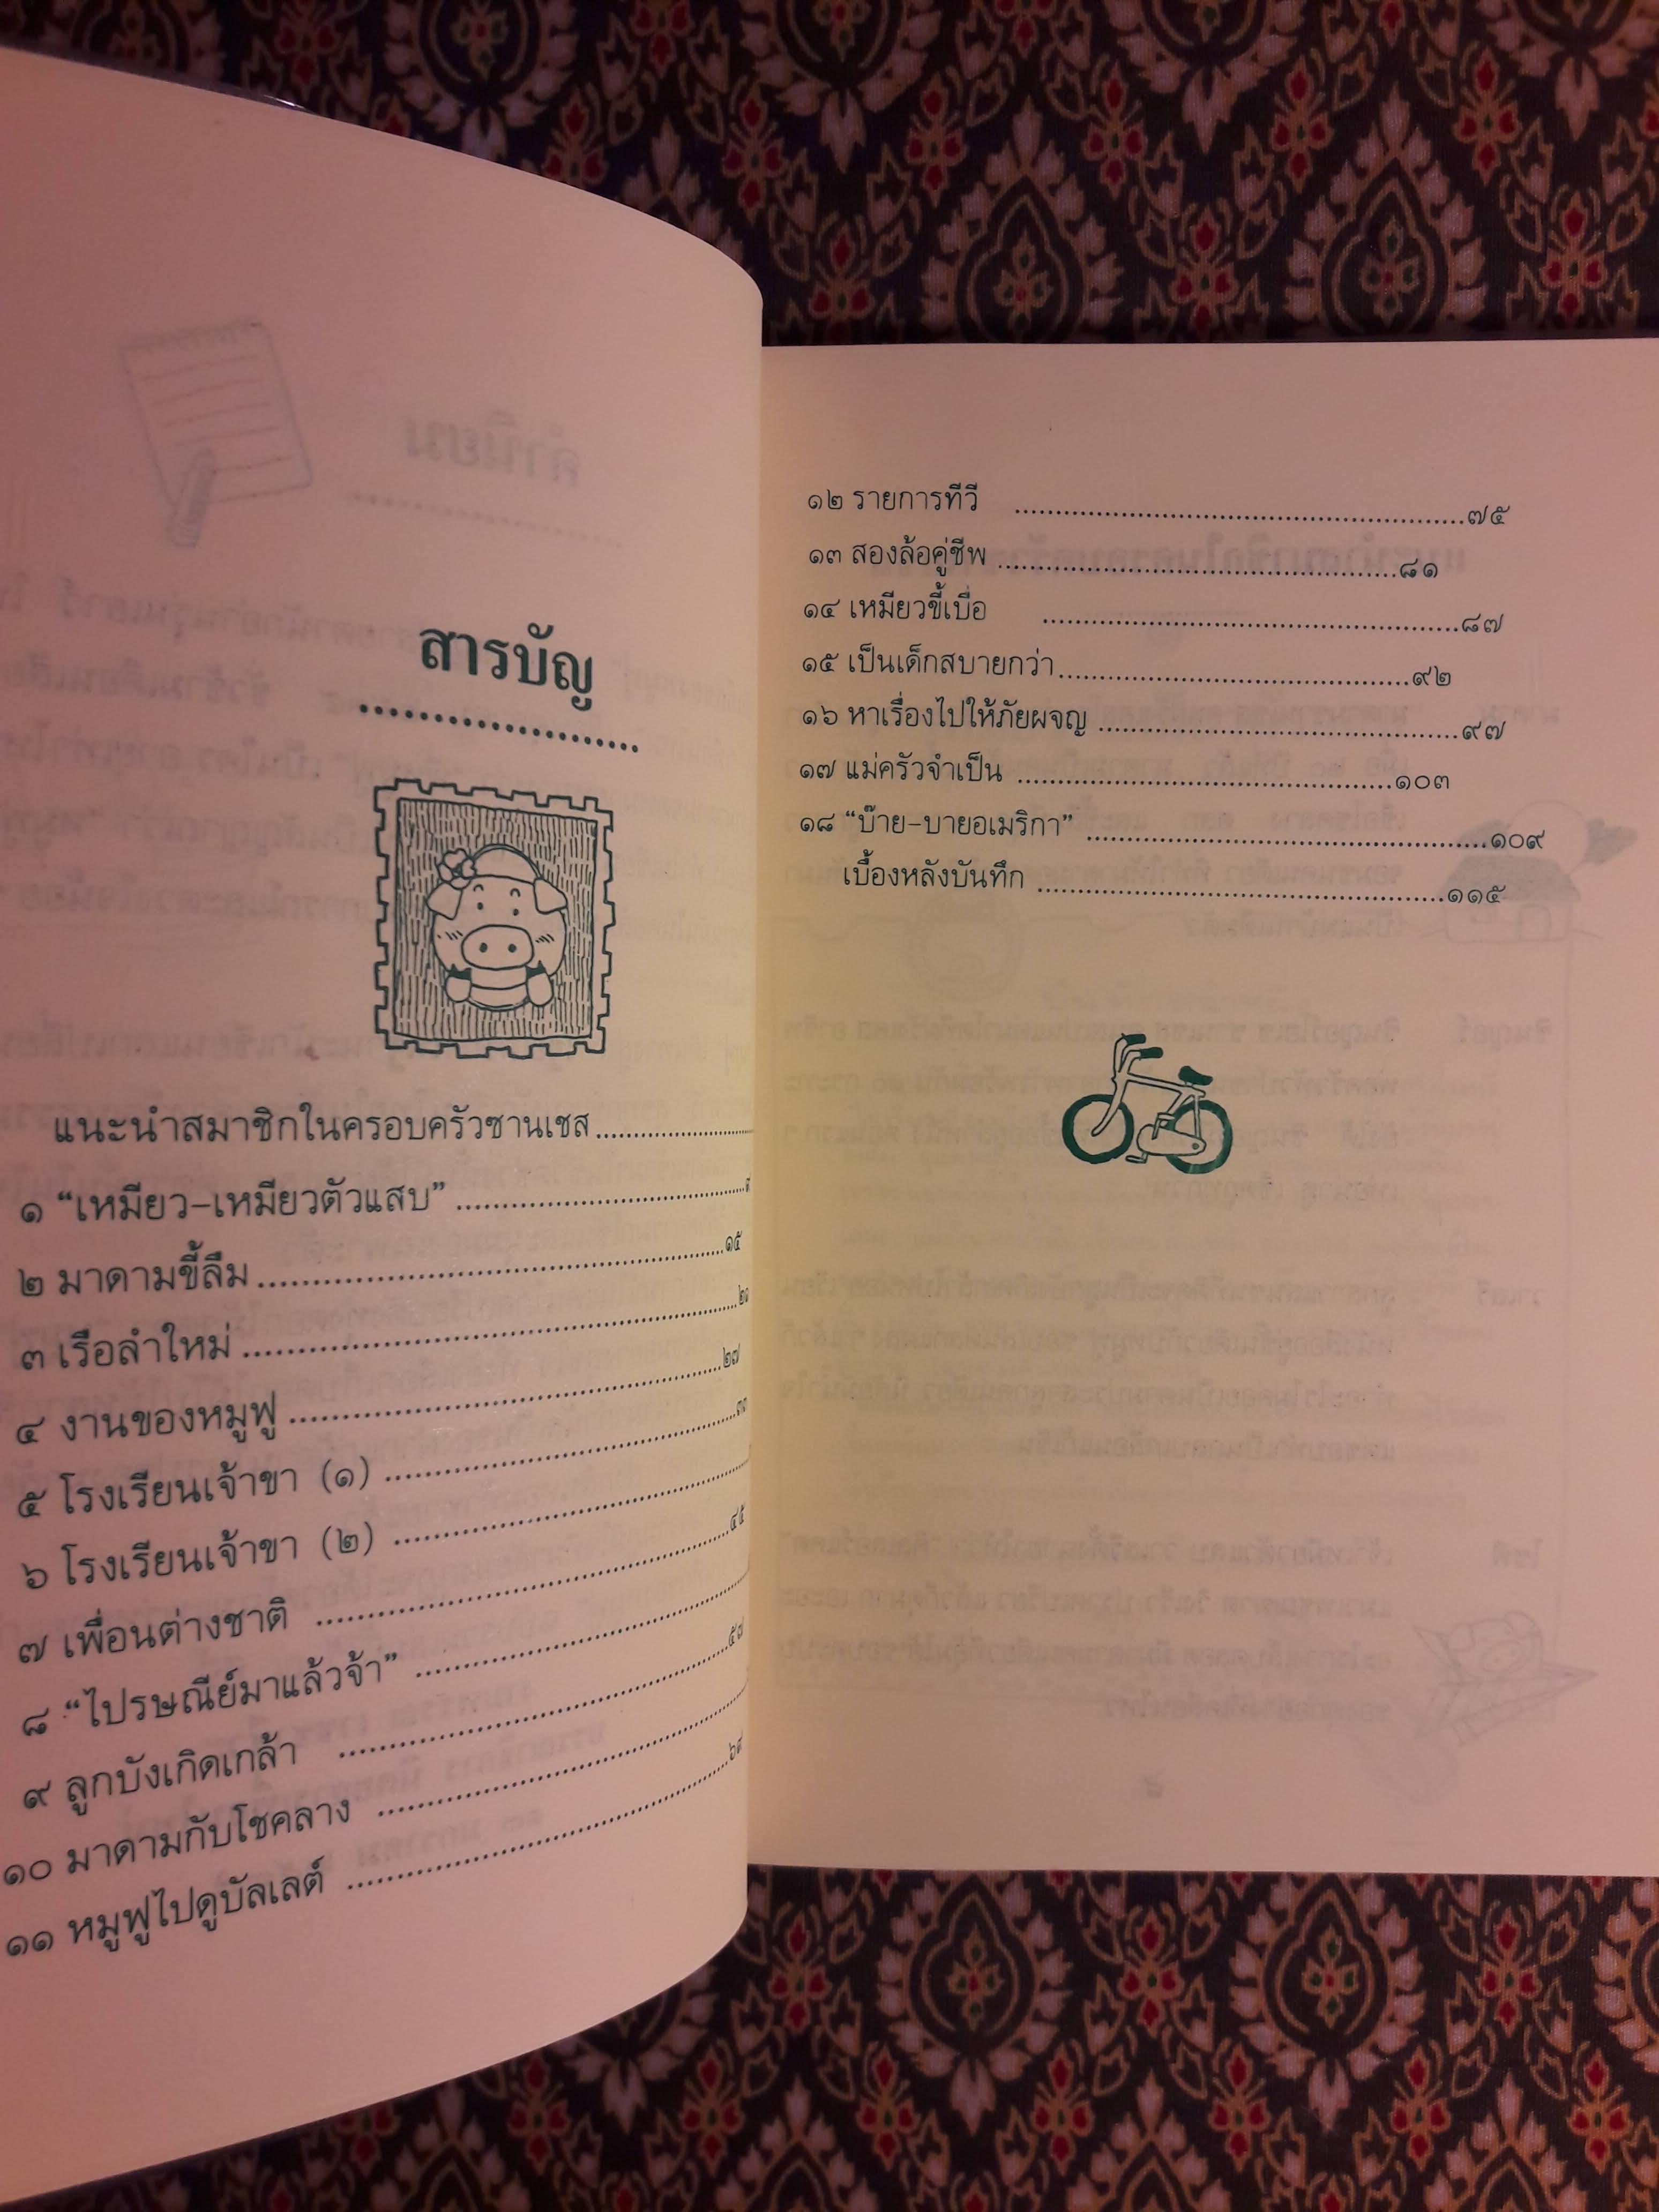 สารบัญ
แนะนำสมาชิกในครอบครัวซานเชส
๑ “เหมียว-เหมียวตัวแสบ”
๒ มาดามขี้ลืม ๑๕
๓ เรือลำใหม่
๔ งานของหมูฟู ๒๗
๕ โรงเรียนเจ้าขา (๑)
๖ โรงเรียนเจ้าขา (๒)
๗ เพื่อนต่างชาติ ๔๕
๘ “ไปรษณีย์มาแล้วจ้า”
๙ ลูกบังเกิดเกล้า ๕๗
๑๐ มาดามกับโชคลาง
๑๑ หมูฟูไปดูบัลเลต์ ๖๙
๑๒ รายการทีวี ๗๕
๑๓ สองล้อคู่ชีพ ๘๑
๑๔ เหมียวขี้เบื่อ ๘๗
๑๕ เป็นเด็กสบายกว่า ๙๒
๑๖ หาเรื่องไปให้ภัยผจญ ๙๗
๑๗ แม่ครัวจำเป็น ๑๐๓
๑๘ “บ๊าย-บายอเมริกา” ๑๐๙
เบื้องหลังบันทึก ๑๑๕